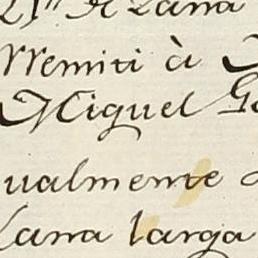 de Lana
Remiti à
Miguel
ualmente
Lana larga